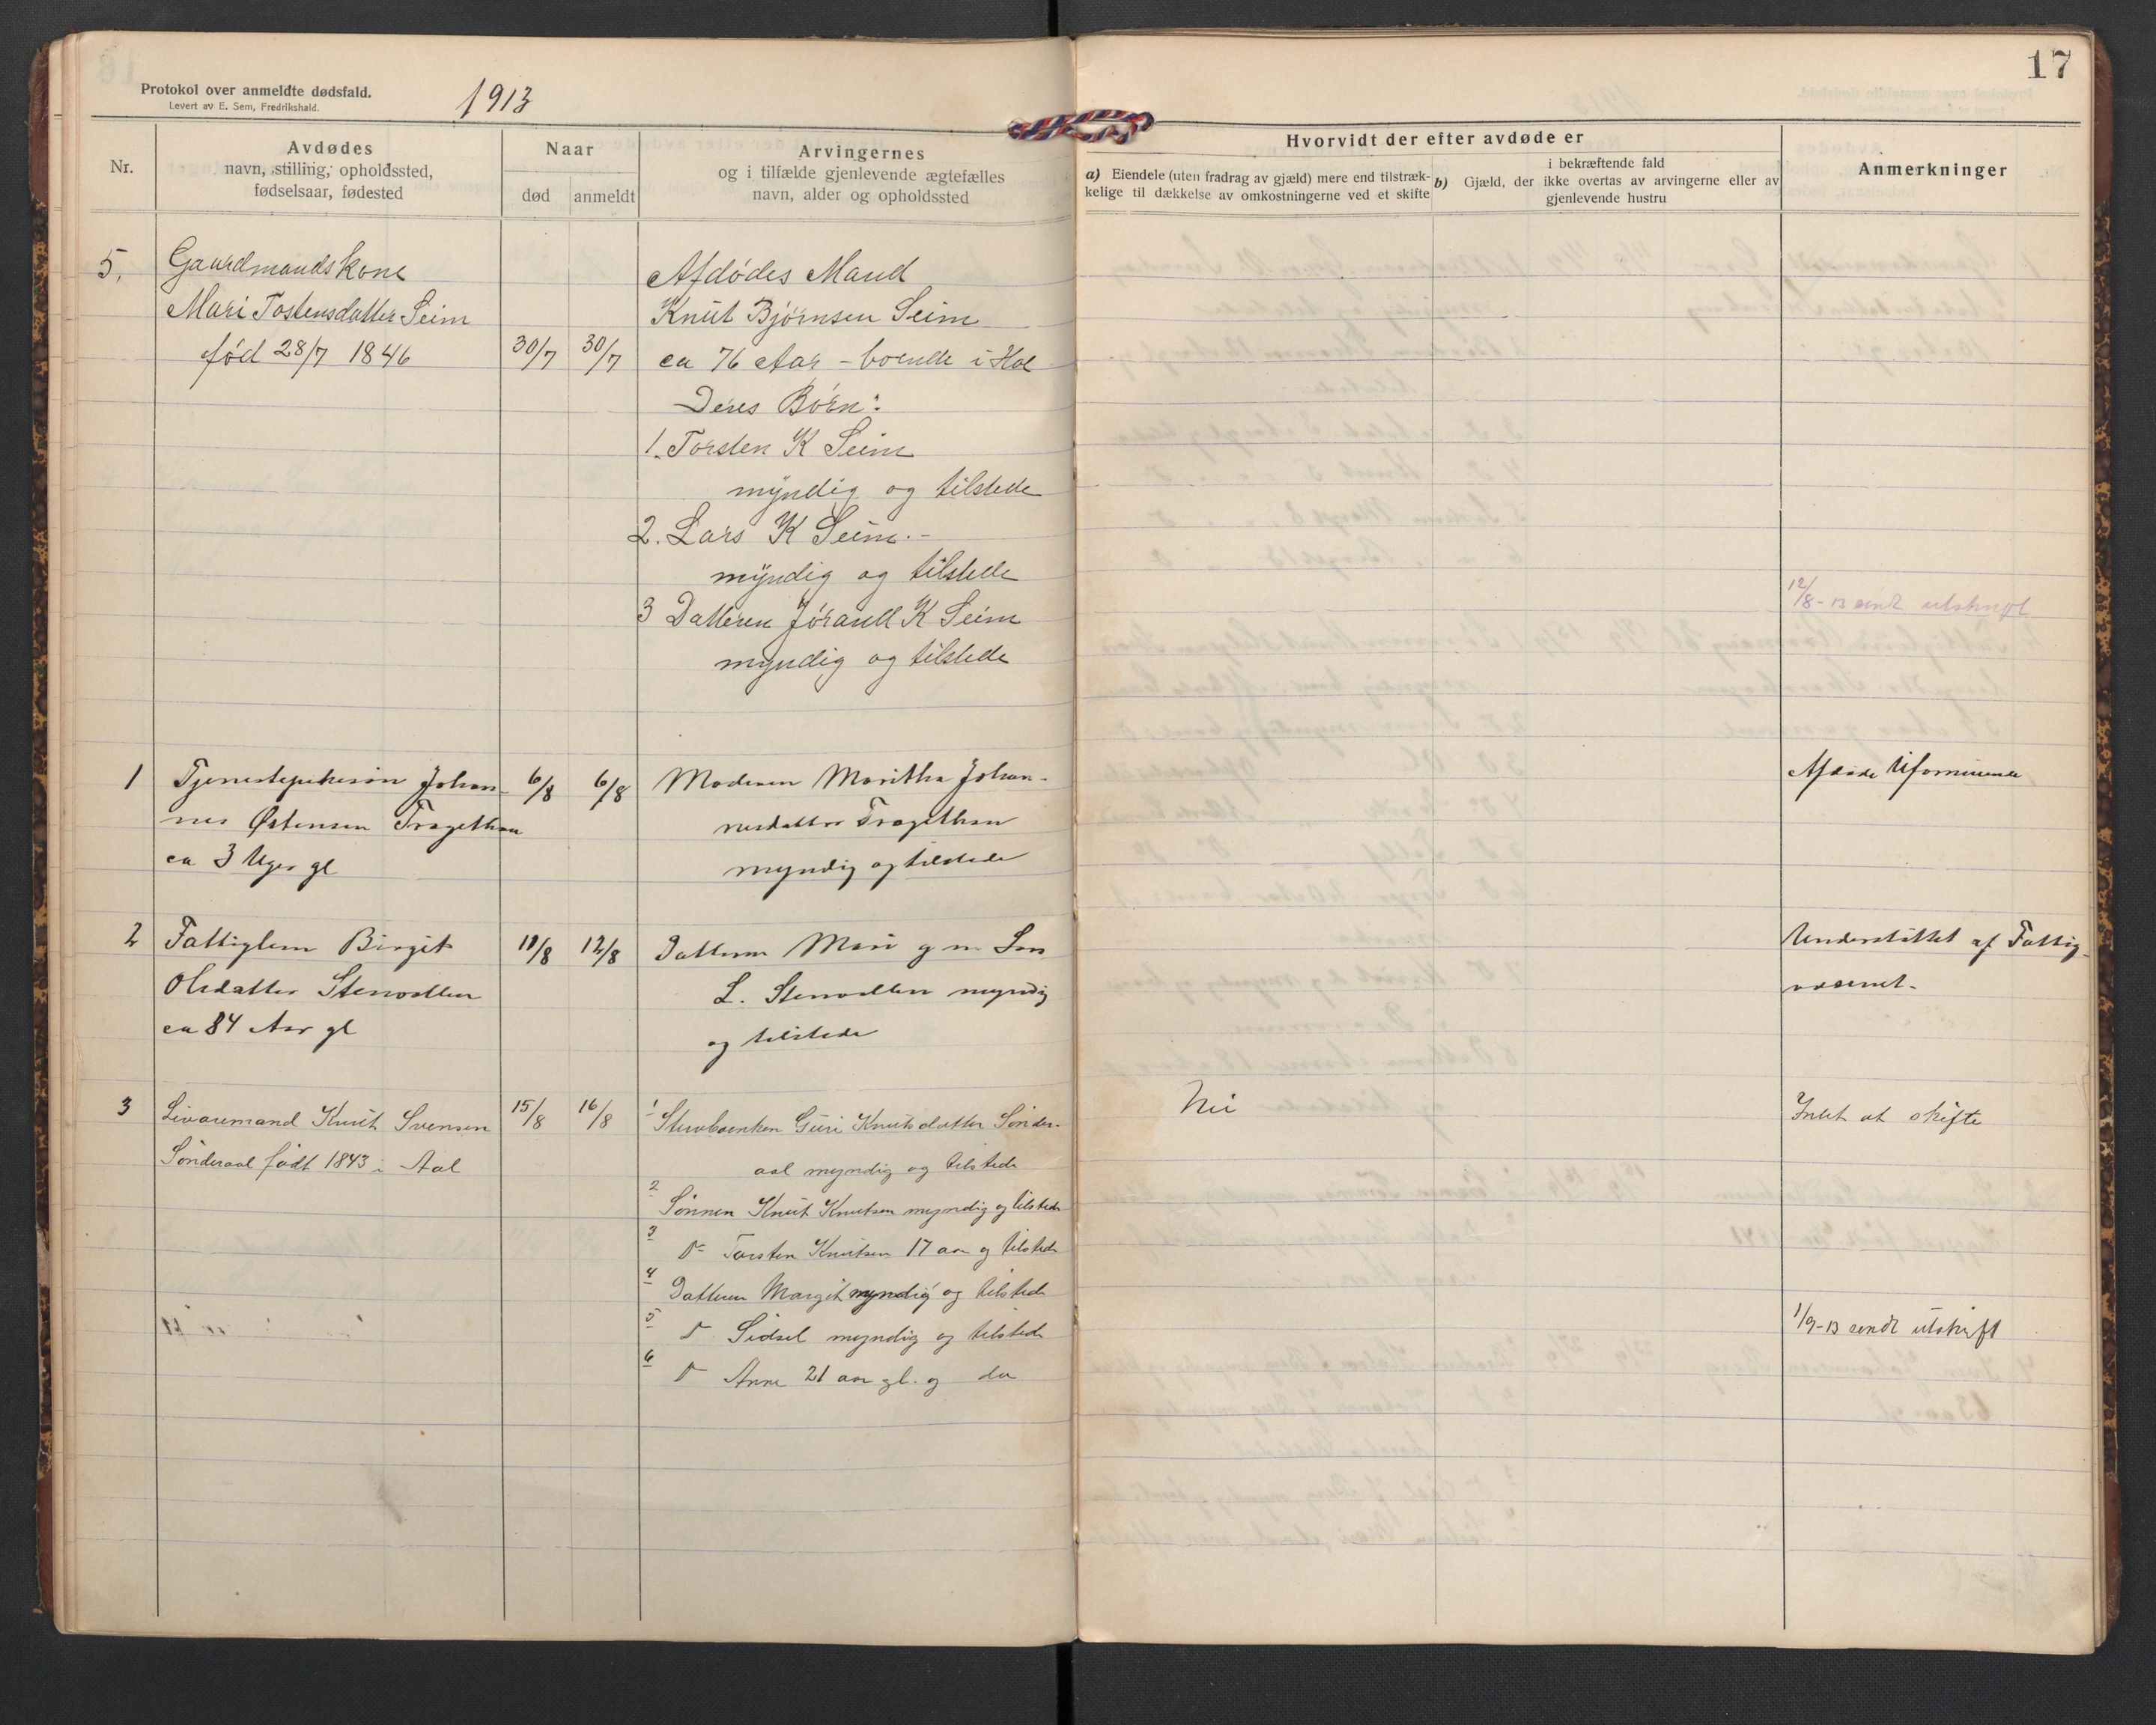 Protokol over anmeldte dødsfald.
Levert av E. Sem, Fredrikshald.
1913
17
Nr.
Avdødes
navn, stilling, opholdssted,
fødselsaar, fødested
Naar
død
anmeldt
Arvingernes
og i tilfælde gjenlevende ægtefælles
navn, alder og opholdssted
Hvorvidt der efter avdøde er
a) Eiendele (uten fradrag av gjæld) mere end tilstræk-
kelige til dækkelse av omkostningerne ved et skifte
i bekræftende fald
b) Gjæld, der ikke overtas av arvingerne eller av
gjenlevende hustru
Anmerkninger
5.
Gaardmandskone
Mari Tostensdatter Seim
fød 28/7 1846
30/7
30/7
Afdødes Mand
Knut Bjørnsen Seim
ca 76 Aar - boende i Hol
Deres Børn:
1. Torsten K Seim
myndig og tilstede
2. Lars K Seim.-
myndig og tilstede
3 Datteren Jørand K Seim
myndig og tilstede
12/8-13 sendt utskrift
1
Tjenestepikesøn Johan-
nes Østensen Tragethon
ca 3 Uger gl
6/8
6/8
Moderen Maritha Johan-
nesdatter Tragethon
myndig og tilstede
Afdøde Uformuende
2
Fattiglem Birgit
Olsdatter Stenvollen
ca 84 Aar gl
11/8
12/8
Datteren Mari g m
L. Stenvollen myndig
og tilstede
Understøttet af Fattig-
væsenet.
3
Livøremand Knut Svensen
Sønderaal født 1843 i Aal
15/8
16/8
1 Stervboenken Guri Knutsdatter Sønder-
aal myndig og tilstede
2 Sønnen Knut Knutsen myndig og tilstede
3 D- Torsten Knutsen 17 aar og tilstede
4 Datteren Margit myndig og tilstede
5 D Sidsel myndig og tilstede
6 D Anne 21 aar gl. og do
Nei
Intet at skifte
1/9-13 sendt utskrift